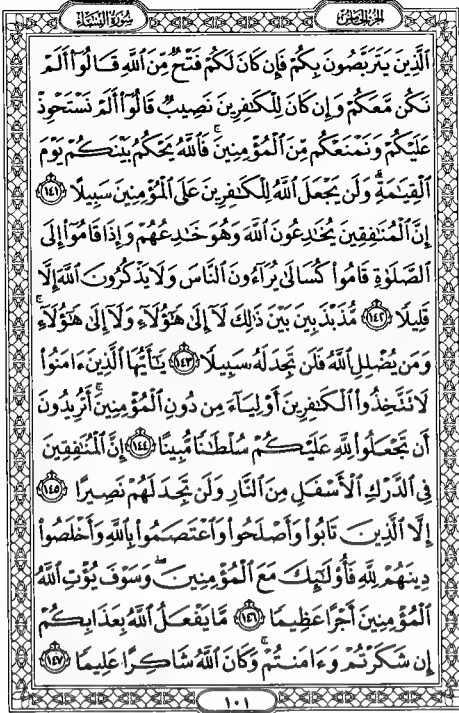 الجزء الخامس سورة النساء
ٱلَّذِينَ يَتَرَبَّصُونَ بِكُمْ فَإِن كَانَ لَكُمْ فَتْحٌ مِّنَ ٱللَّهِ قَالُوٓا۟ أَلَمْ
نَكُن مَّعَكُمْ وَإِن كَانَ لِلْكَـٰفِرِينَ نَصِيبٌ قَالُوٓا۟ أَلَمْ نَسْتَحْوِذْ
عَلَيْكُمْ وَنَمْنَعْكُم مِّنَ ٱلْمُؤْمِنِينَ ۚ فَٱللَّهُ يَحْكُمُ بَيْنَكُمْ يَوْمَ
ٱلْقِيَـٰمَةِ ۗ وَلَن يَجْعَلَ ٱللَّهُ لِلْكَـٰفِرِينَ عَلَى ٱلْمُؤْمِنِينَ سَبِيلًا ١٤١
إِنَّ ٱلْمُنَـٰفِقِينَ يُخَـٰدِعُونَ ٱللَّهَ وَهُوَ خَـٰدِعُهُمْ وَإِذَا قَامُوٓا۟ إِلَى
ٱلصَّلَوٰةِ قَامُوا۟ كُسَالَىٰ يُرَآءُونَ ٱلنَّاسَ وَلَا يَذْكُرُونَ ٱللَّهَ إِلَّا
قَلِيلًا ١٤٢ مُّذَبْذَبِينَ بَيْنَ ذَٰلِكَ لَآ إِلَىٰ هَـٰٓؤُلَآءِ وَلَآ إِلَىٰ هَـٰٓؤُلَآءِ ۚ
وَمَن يُضْلِلِ ٱللَّهُ فَلَن تَجِدَ لَهُۥ سَبِيلًا ١٤٣ يَـٰٓأَيُّهَا ٱلَّذِينَ ءَامَنُوا۟
لَا تَتَّخِذُوا۟ ٱلْكَـٰفِرِينَ أَوْلِيَآءَ مِن دُونِ ٱلْمُؤْمِنِينَ ۚ أَتُرِيدُونَ
أَن تَجْعَلُوا۟ لِلَّهِ عَلَيْكُمْ سُلْطَـٰنًا مُّبِينًا ١٤٤ إِنَّ ٱلْمُنَـٰفِقِينَ
فِى ٱلدَّرْكِ ٱلْأَسْفَلِ مِنَ ٱلنَّارِ وَلَن تَجِدَ لَهُمْ نَصِيرًا ١٤٥
إِلَّا ٱلَّذِينَ تَابُوا۟ وَأَصْلَحُوا۟ وَٱعْتَصَمُوا۟ بِٱللَّهِ وَأَخْلَصُوا۟
دِينَهُمْ لِلَّهِ فَأُو۟لَـٰٓئِكَ مَعَ ٱلْمُؤْمِنِينَ ۖ وَسَوْفَ يُؤْتِ ٱللَّهُ
ٱلْمُؤْمِنِينَ أَجْرًا عَظِيمًا ١٤٦ مَّا يَفْعَلُ ٱللَّهُ بِعَذَابِكُمْ
إِن شَكَرْتُمْ وَءَامَنتُمْ ۚ وَكَانَ ٱللَّهُ شَاكِرًا عَلِيمًا ١٤٧
١٠١